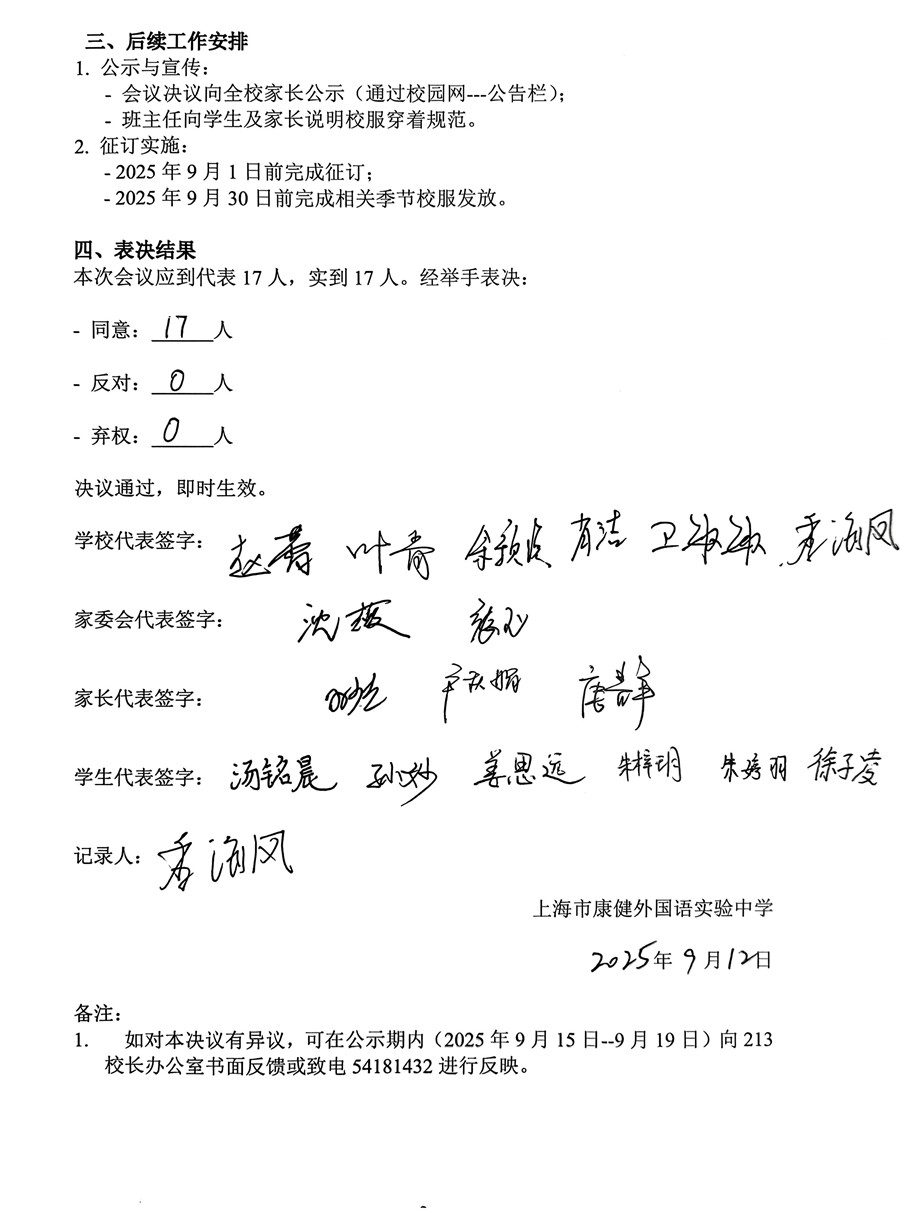 三、后续工作安排
1. 公示与宣传：
- 会议决议向全校家长公示（通过校园网---公告栏）；
- 班主任向学生及家长说明校服穿着规范。
2. 征订实施：
- 2025 年 9 月 1 日前完成征订；
- 2025 年 9 月 30 日前完成相关季节校服发放。
四、表决结果
本次会议应到代表 17 人，实到 17 人。经举手表决：
- 同意：17人
- 反对：0人
- 弃权：0人
决议通过，即时生效。
学校代表签字： 叶青 肖洁 卫敏敏 季海凤
家委会代表签字：
家长代表签字：
学生代表签字： 汤铭晨 孙妙 姜思远 朱梓玥 徐子凌
记录人：季海凤
上海市康健外国语实验中学
2025年9月12日
备注：
1. 如对本决议有异议，可在公示期内（2025 年 9 月 15 日--9 月 19 日）向 213
校长办公室书面反馈或致电 54181432 进行反映。